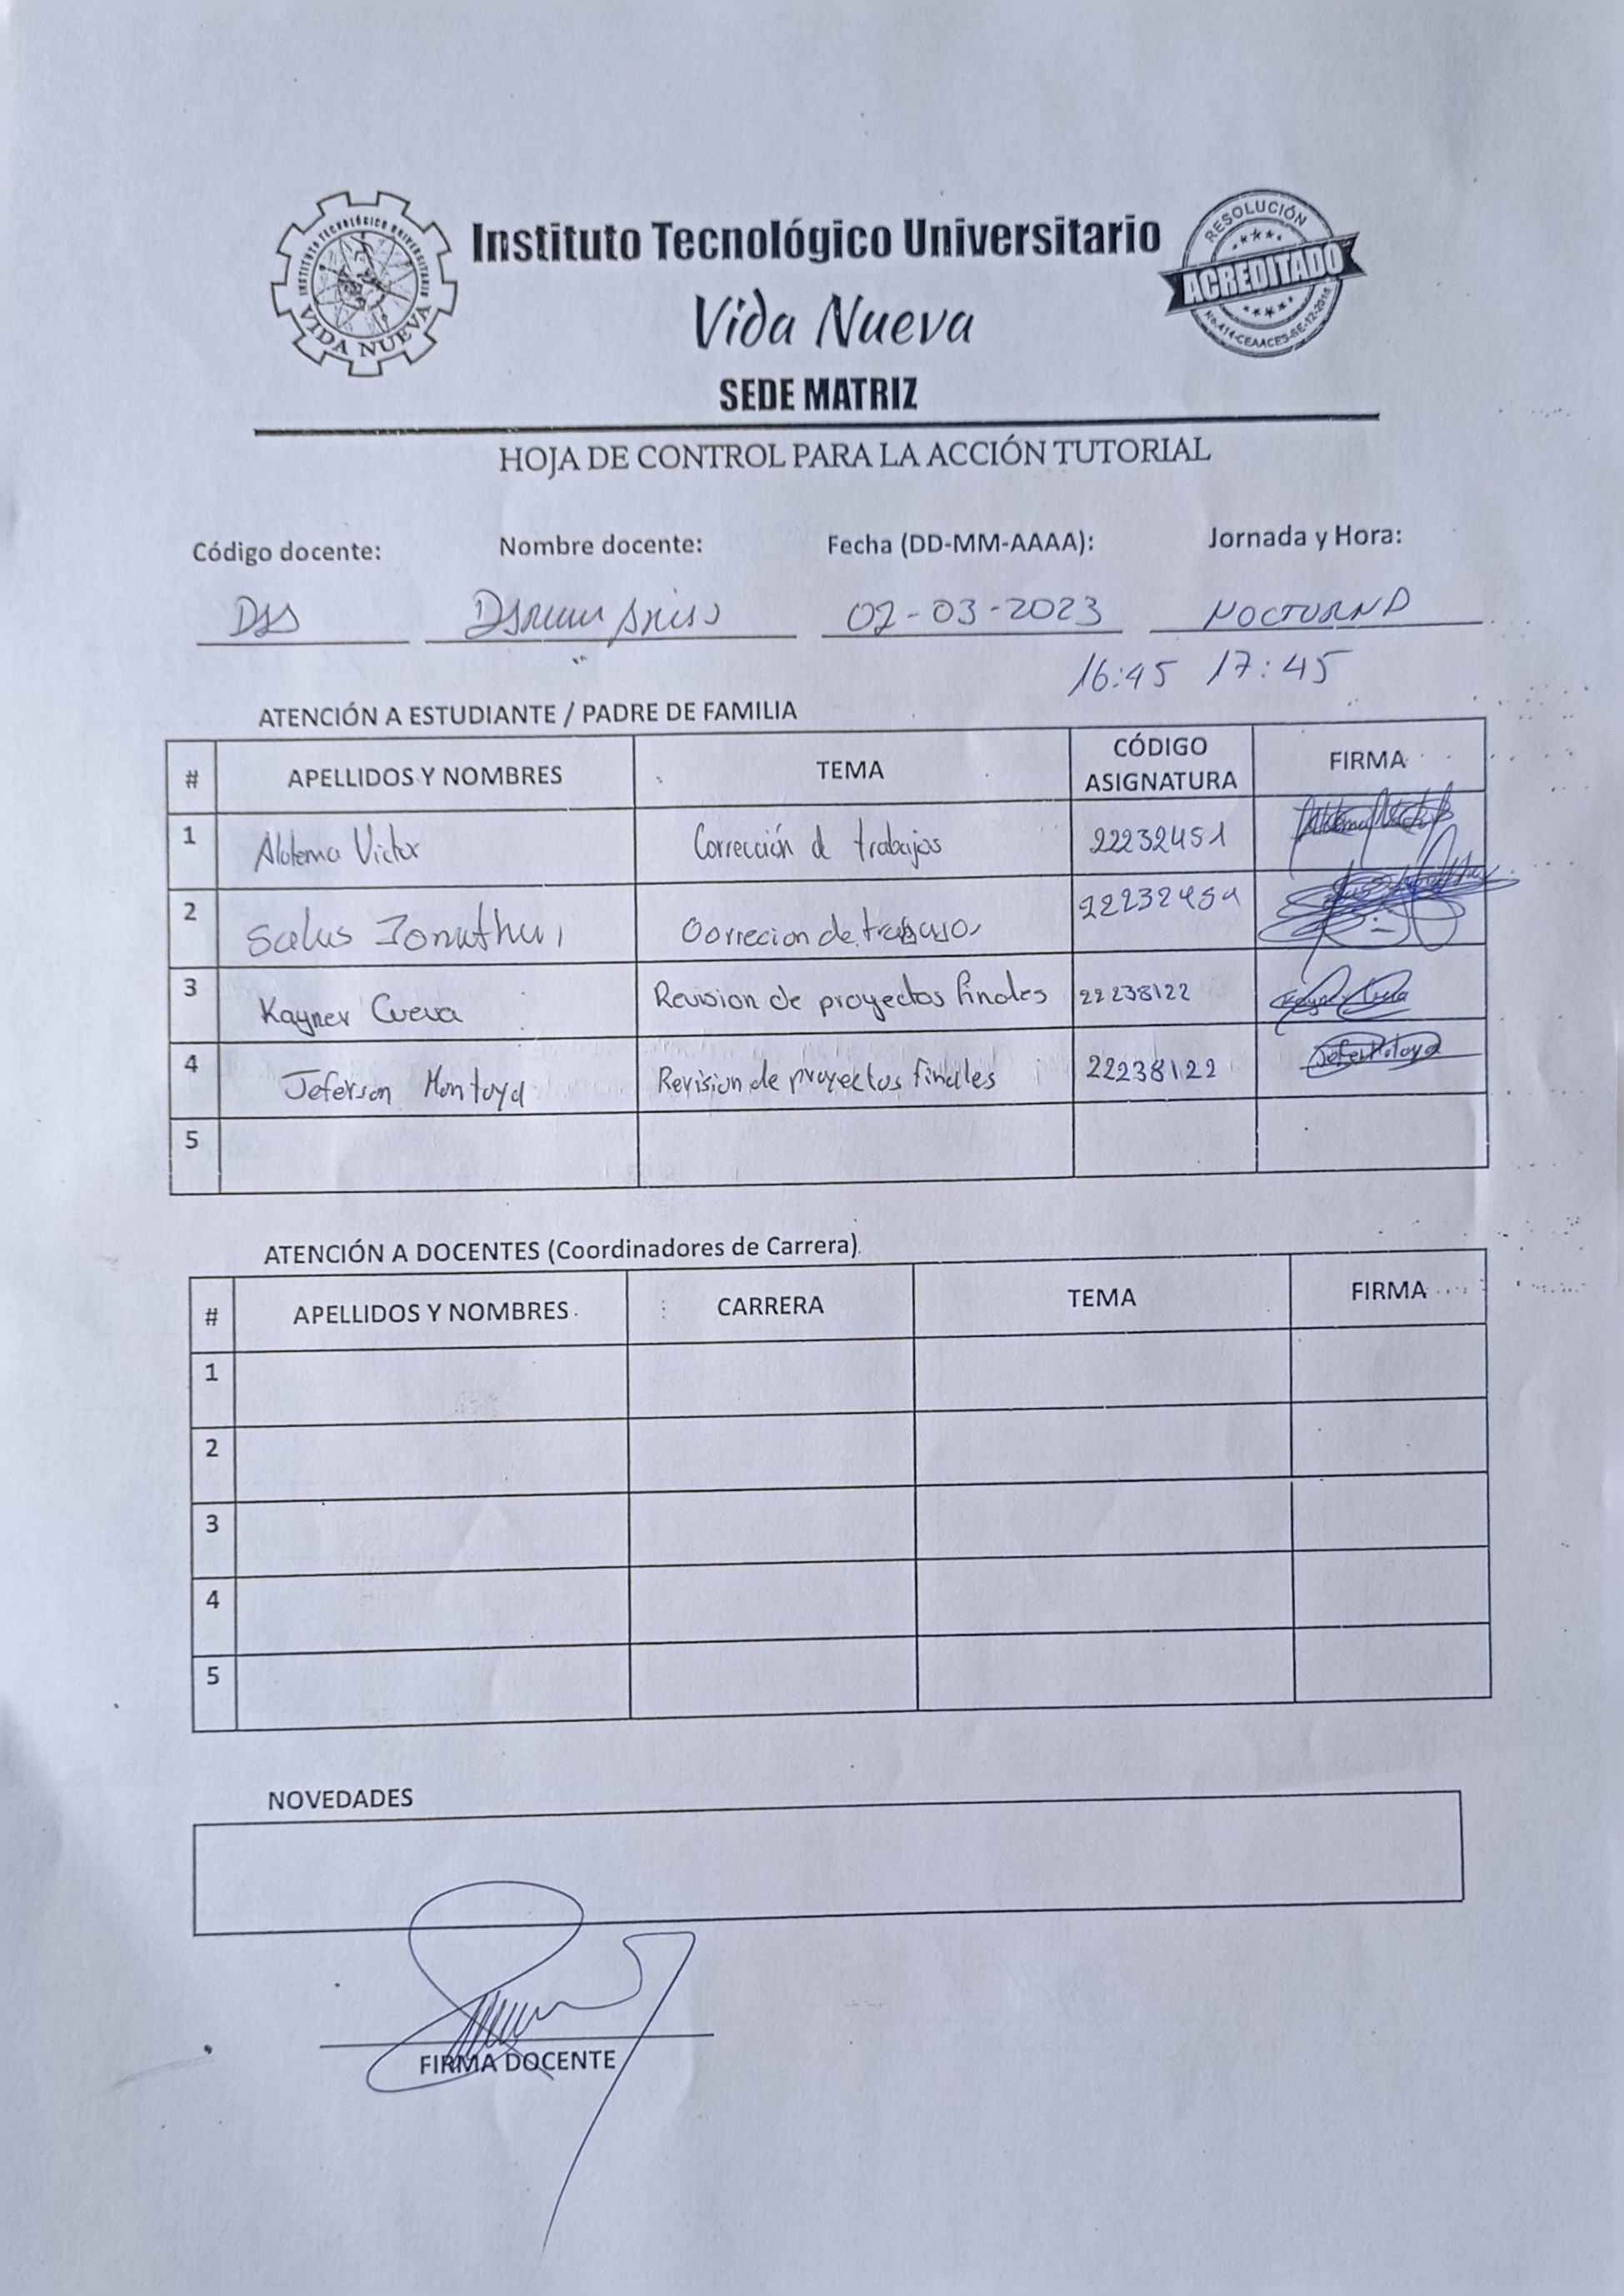 INSTITUTO TECNOLÓGICO UNIVERSITARIO
VIDA NUEVA
Instituto Tecnológico Universitario
Vida Nueva
SEDE MATRIZ
RESOLUCIÓN
ACREDITADO
No.414-CEAACES-SE-12-2016
HOJA DE CONTROL PARA LA ACCIÓN TUTORIAL
Código docente: Nombre docente: Fecha (DD-MM-AAAA): Jornada y Hora:
02-03-2023 NOCTURNA
16:45 17:45
ATENCIÓN A ESTUDIANTE / PADRE DE FAMILIA
# APELLIDOS Y NOMBRES TEMA CÓDIGO ASIGNATURA FIRMA
1 Victor Corrección de trabajos 22232451
2 Salus Jonathan Correcion de trabajos 22232451
3 Kayner Cueva Revision de proyectos finales 22238122 Kayner Cueva
4 Jeferson Montoya Revision de proyectos finales 22238122
5
ATENCIÓN A DOCENTES (Coordinadores de Carrera)
# APELLIDOS Y NOMBRES CARRERA TEMA FIRMA
1
2
3
4
5
NOVEDADES
FIRMA DOCENTE